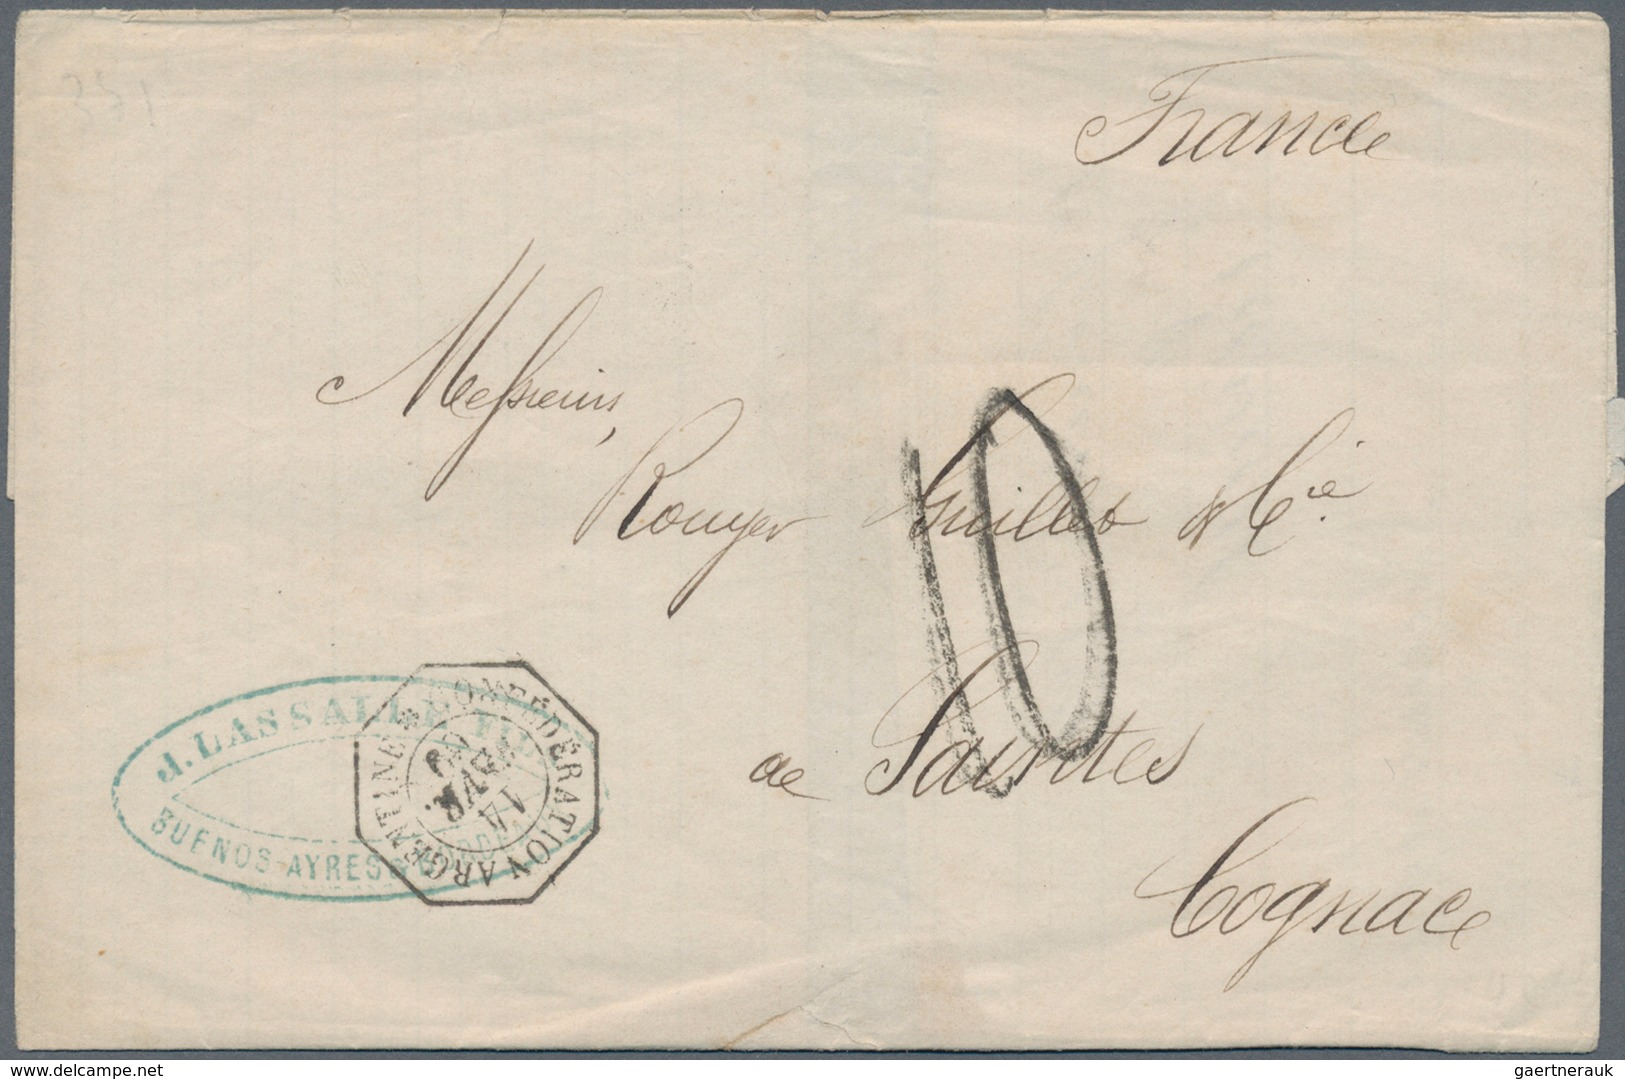 351
France
Messieurs,
Rouyer Guillet & Cie.
10
de Saintes
Cognac
J. LASSALLE FILS
BUENOS-AYRES & BORDEAUX
CONFÉDÉRATION ARGENTINE *
14
FEVR.
delcampe.net
gaertnerauk